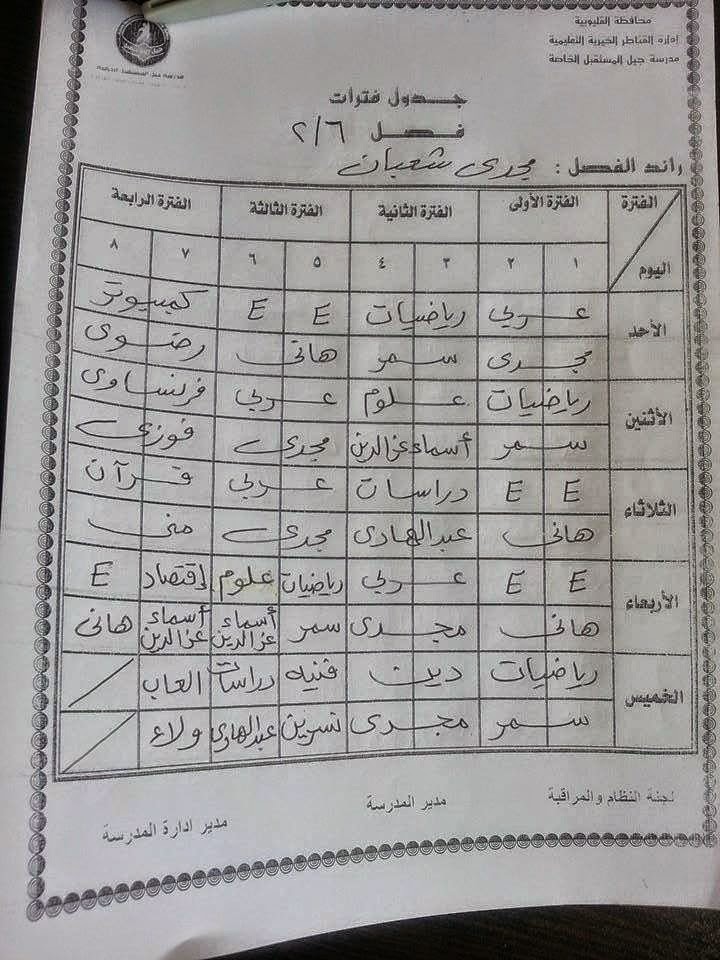 محافظة القليوبية
إدارة القناطر الخيرية التعليمية
مدرسة جيل المستقبل الخاصة
جدول فترات
فصل ٢/٦
رائد الفصل : مجدى شعبان
الفترة الفترة الأولى الفترة الثانية الفترة الثالثة الفترة الرابعة
اليوم ١ ٢ ٣ ٤ ٥ ٦ ٧ ٨
الأحد عربي رياضيات E E كمبيوتر
مجدى سمر هانى رضوى
الأثنين رياضيات علوم عربي فرنساوى
سمر أسماء عز الدين مجدى فوزى
الثلاثاء E E دراسات عربي قرآن
هانى عبد الهادى مجدى منى
الأربعاء E E عربي رياضيات علوم إقتصاد E
هانى مجدى سمر أسماء عز الدين أسماء عز الدين هانى
الخميس رياضيات دين فنيه دراسات العاب
سمر مجدى نسرين عبد الهادى ولاء
لجنة النظام والمراقبة
مدير المدرسة
مدير ادارة المدرسة